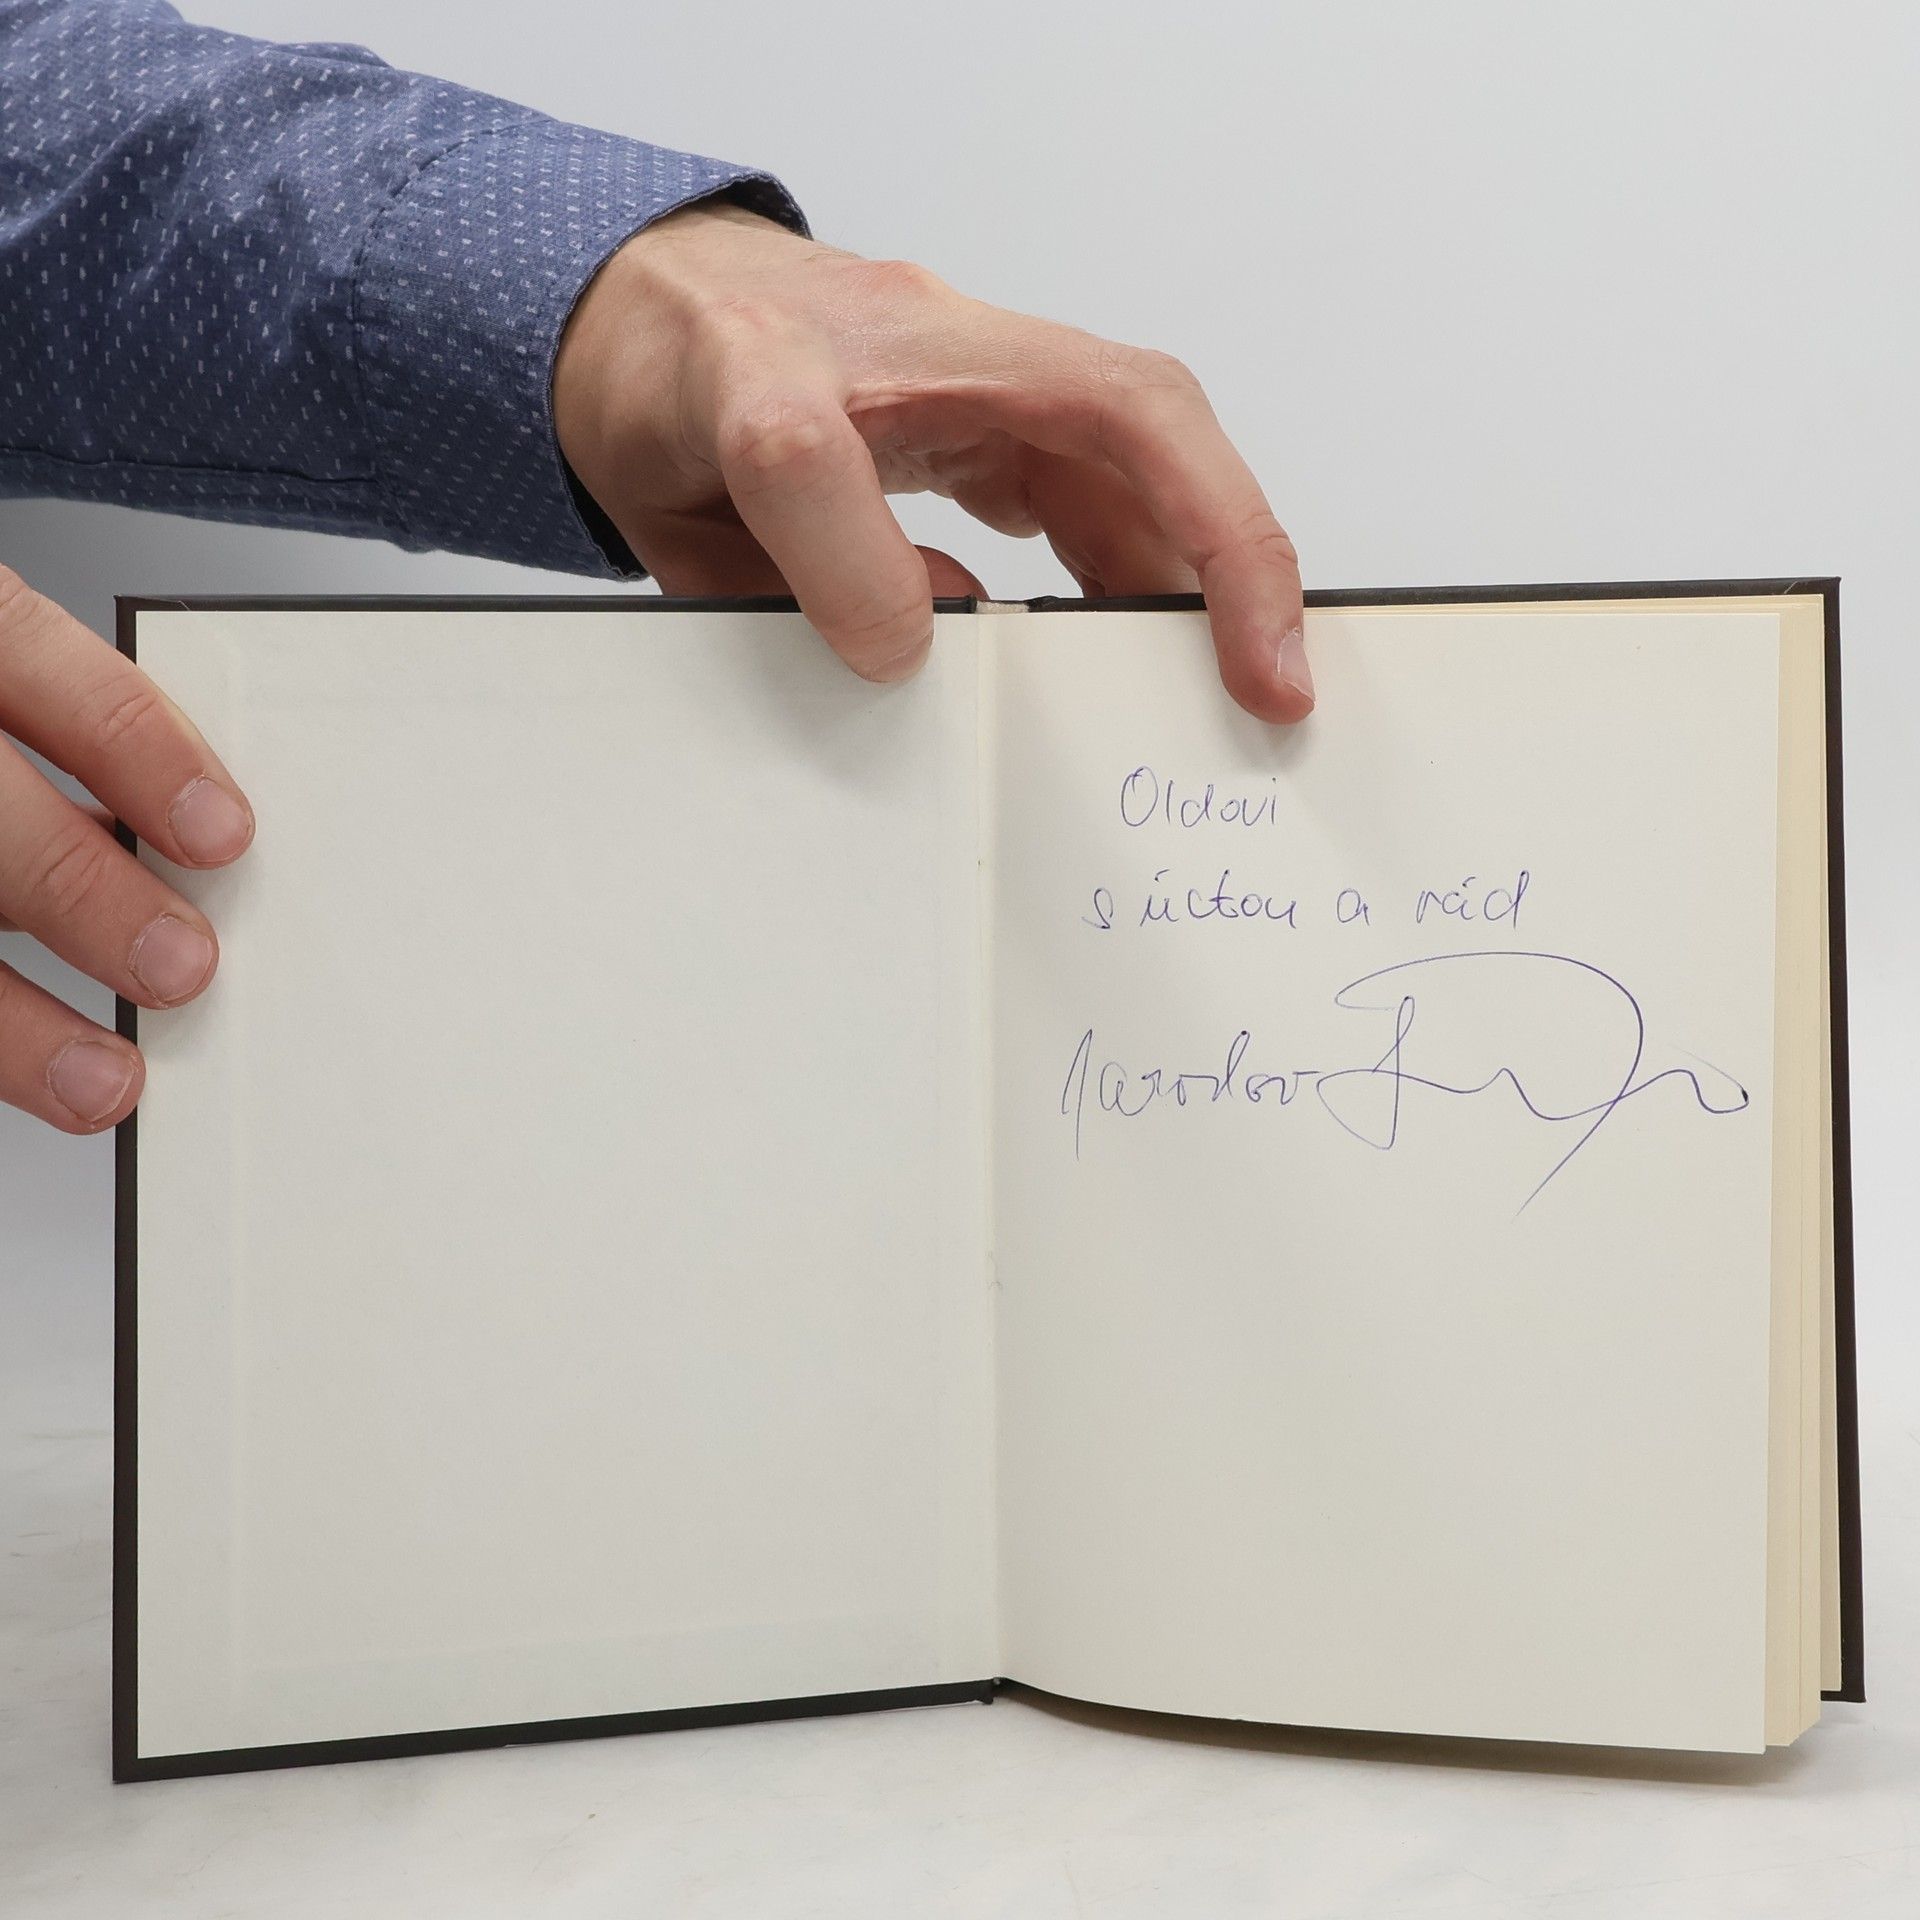 Oldovi
s úctou a rád
Jaroslav